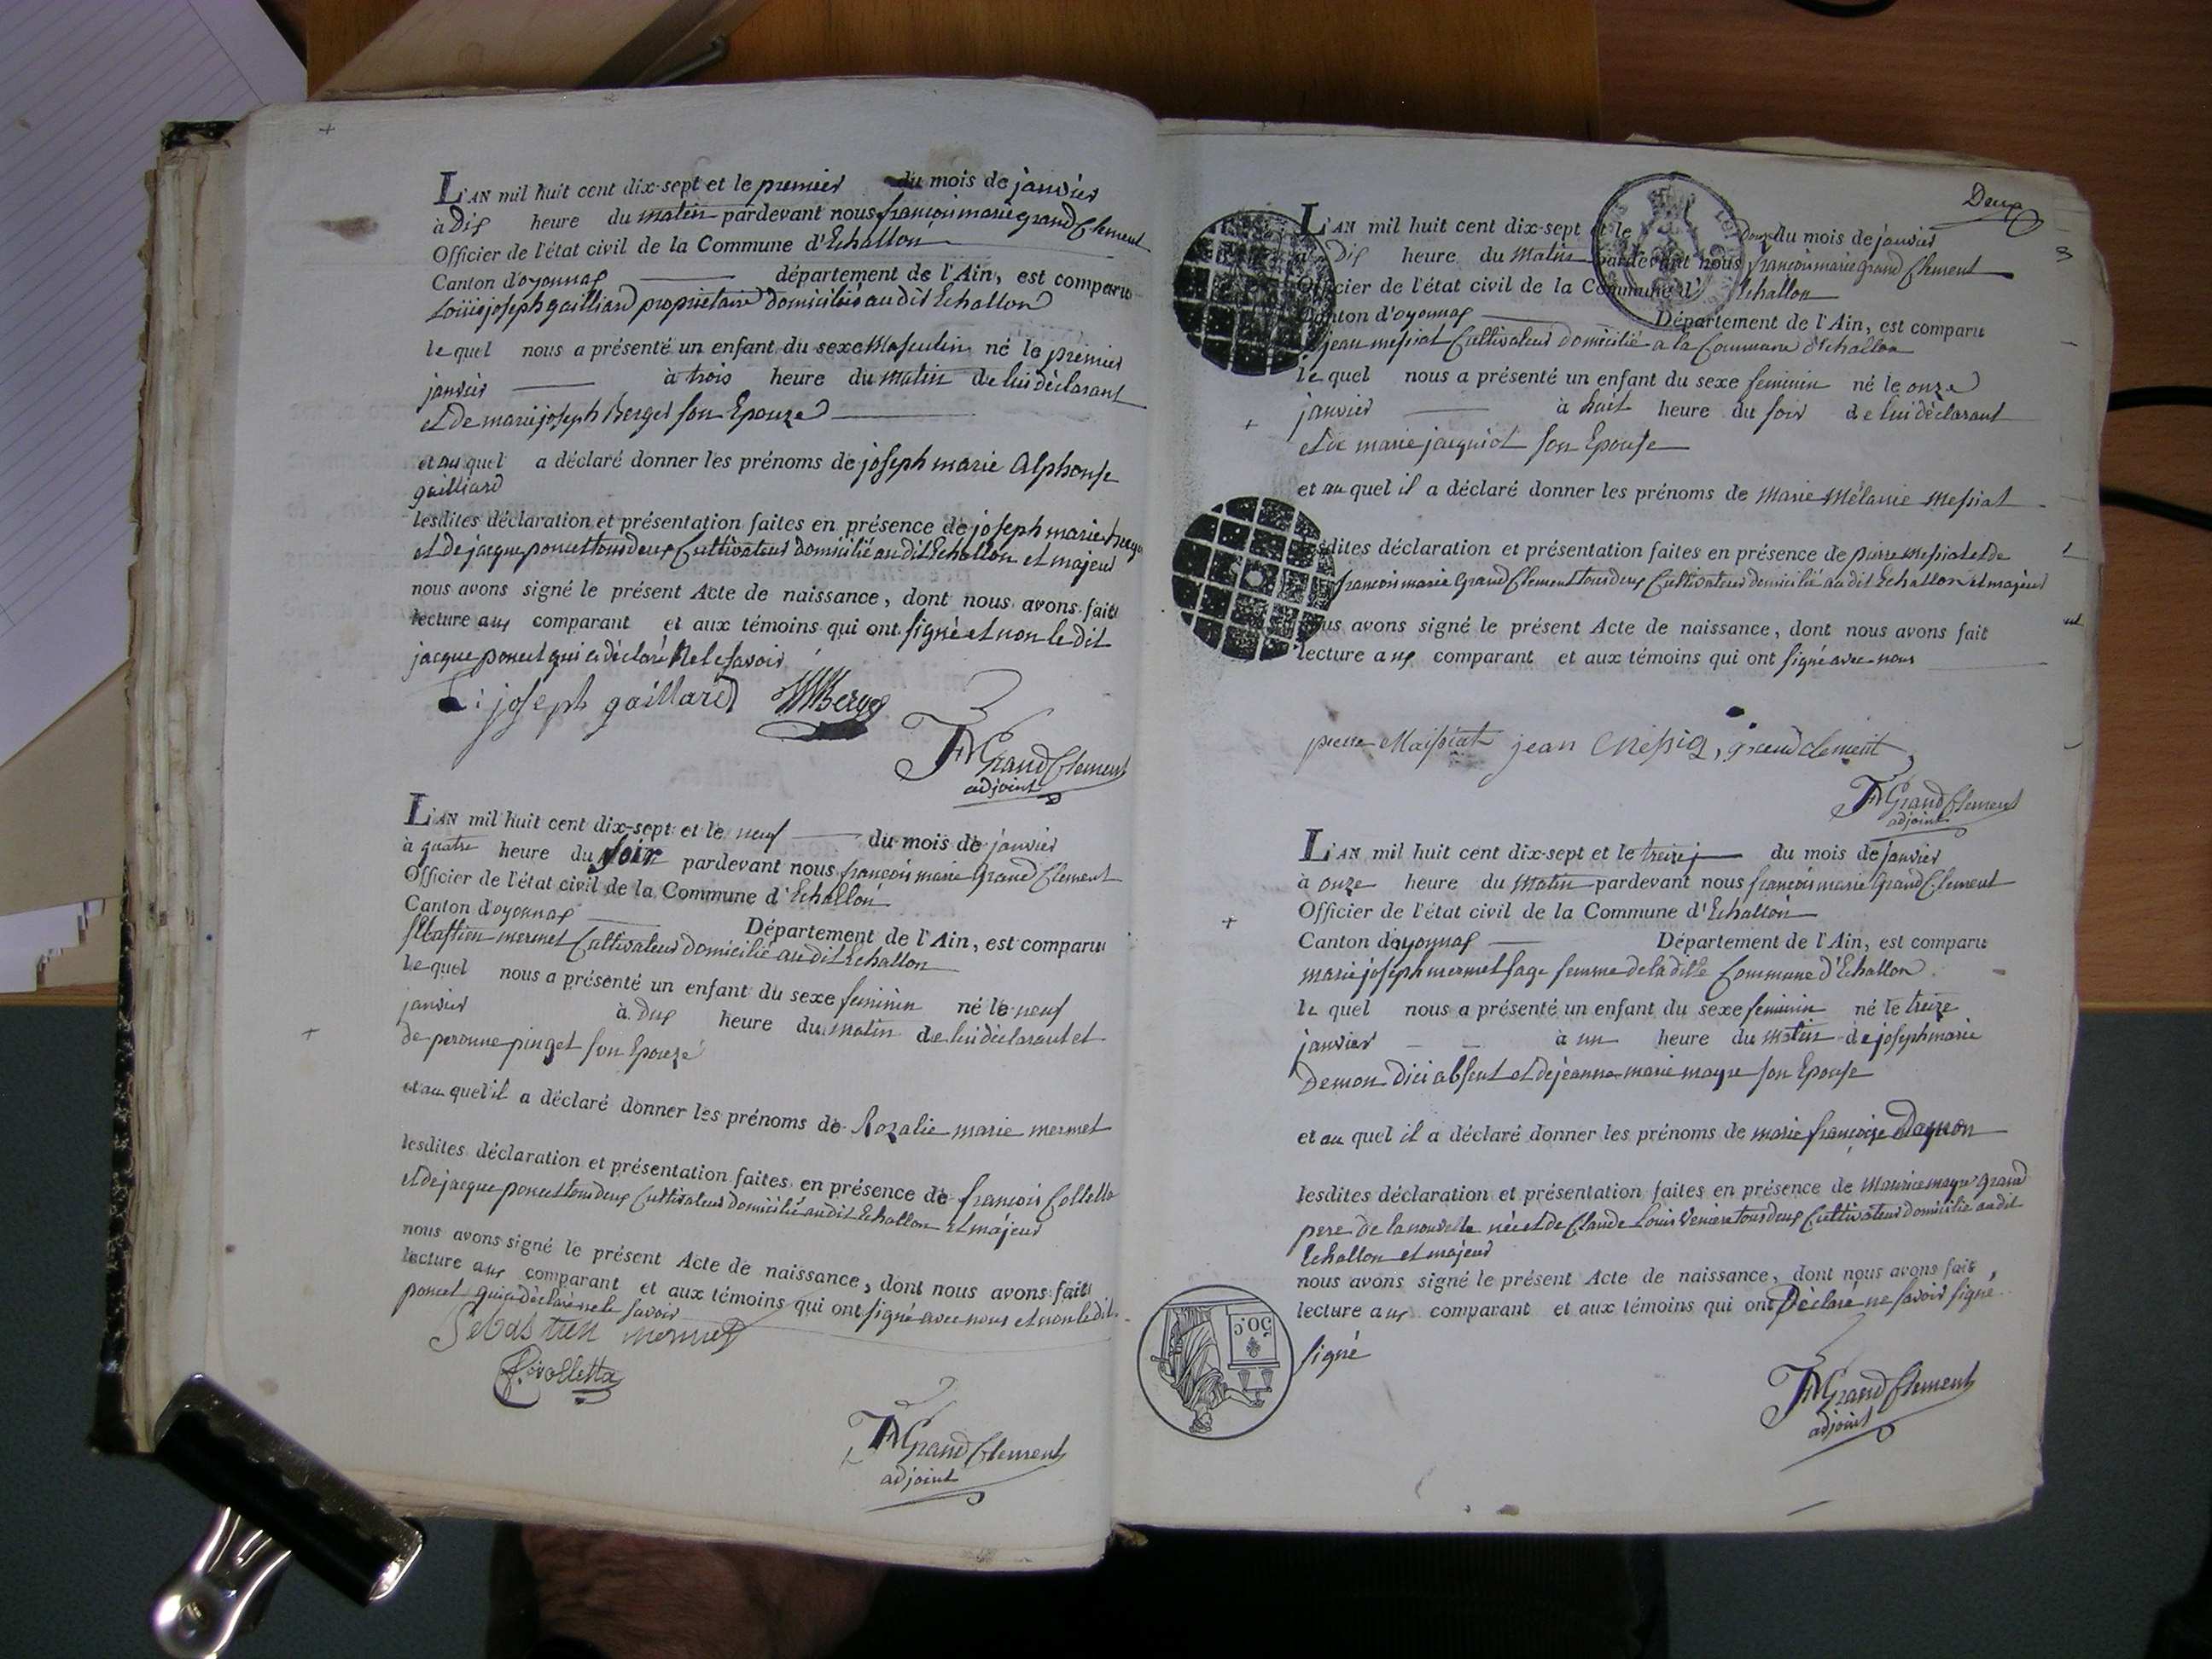 L'AN mil huit cent dix-sept et le premier du mois de janvier
à Dix heure du matin pardevant nous françois marie grand Clement
Officier de l'état civil de la Commune d'Echallon
Canton d'oyonnax département de l'Ain, est comparu
Louis joseph gailliard propriétaire domicilié au dit Echallon
lequel nous a présenté un enfant du sexe Masculin né le premier
janvier à trois heure du matin de lui déclarant
et de marie joseph Berger son Epouze
et au quel a déclaré donner les prénoms de joseph marie Alphonse
gailliard
lesdites déclaration et présentation faites en présence de joseph marie
et de jacque poncet tous deux Cultivateur domicilié au dit Echallon et majeur
nous avons signé le présent Acte de naissance, dont nous avons fait
lecture aux comparant et aux témoins qui ont signé et non le dit
jacque poncet qui a déclaré Ne le savoir
joseph gaillard
FM Grand Clement
adjoint
L'AN mil huit cent dix-sept et le neuf du mois de janvier
à quatre heure du soir pardevant nous françois marie Grand Clement
Officier de l'état civil de la Commune d'Echallon
Canton d'oyonnax Département de l'Ain, est comparu
sébastien mermet Cultivateur domicilié au dit Echallon
lequel nous a présenté un enfant du sexe feminin né le neuf
janvier à dix heure du matin de lui déclarant et
de peronne pinget son Epouze
et au quel il a déclaré donner les prénoms de Rozalie marie mermet
lesdites déclaration et présentation faites en présence de françois Colletta
et de jacque poncet tous deux Cultivateur domicilié au dit Echallon et majeur
nous avons signé le présent Acte de naissance, dont nous avons fait
lecture aux comparant et aux témoins qui ont signé avec nous et non le dit
poncet qui a déclaré ne le savoir
Sebastien mermet
Colletta
FM Grand Clement
adjoint
Deux
L'AN mil huit cent dix-sept et le Douze du mois de janvier
à Dix heure du Matin pardevant nous françois marie grand Clement
Officier de l'état civil de la Commune d'Echallon
Canton d'oyonnax Département de l'Ain, est comparu
jean messiat Cultivateur domicilié a la Commune d'Echallon
lequel nous a présenté un enfant du sexe feminin né le onze
janvier à huit heure du soir de lui déclarant
et de marie jacquiot son Epouse
et au quel il a déclaré donner les prénoms de Marie Mélanie Messiat
lesdites déclaration et présentation faites en présence de pierre Messiat et de
françois marie Grand Clement tous deux Cultivateur domicilié au dit Echallon et majeur
nous avons signé le présent Acte de naissance, dont nous avons fait
lecture aux comparant et aux témoins qui ont signé avec nous
pierre Maissiat jean grand clement
FM Grand Clement
adjoint
L'AN mil huit cent dix-sept et le treize du mois de janvier
à onze heure du Matin pardevant nous françois marie Grand Clement
Officier de l'état civil de la Commune d'Echallon
Canton d'oyonnax Département de l'Ain, est comparu
marie joseph mermet sage femme de la ditte Commune d'Echallon
lequel nous a présenté un enfant du sexe feminin né le treize
janvier à un heure du matin de joseph marie
Demon dici absent et de jeanne marie mayre son Epouse
et au quel il a déclaré donner les prénoms de marie françoise
lesdites déclaration et présentation faites en présence de Maurice mayre Grand
pere de la nouvelle née et de Claude Louis tous deux Cultivateur domicilié au dit
Echallon et majeur
nous avons signé le présent Acte de naissance, dont nous avons fait
lecture aux comparant et aux témoins qui ont Déclaré ne savoir signé
signé
50 c.
FM Grand Clement
adjoint